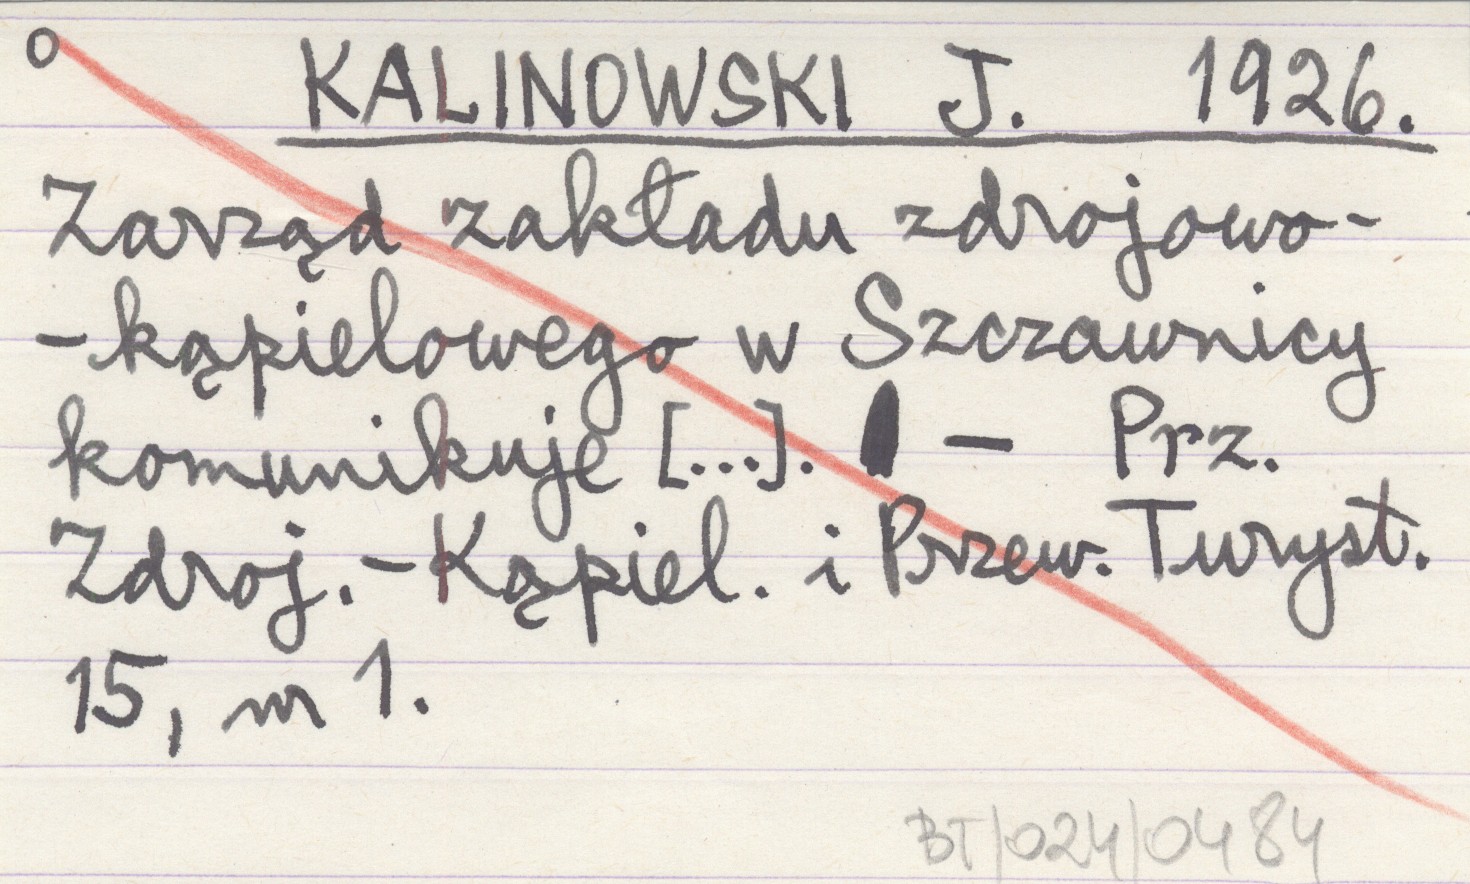 o KALINOWSKI J. 1926.
Zarząd zakładu zdrojowo-
-kąpielowego w Szczawnicy
komunikuje [...]. - Prz.
Zdroj.-Kąpiel. i Przew. Turyst.
15, nr 1.
BT/024/0484